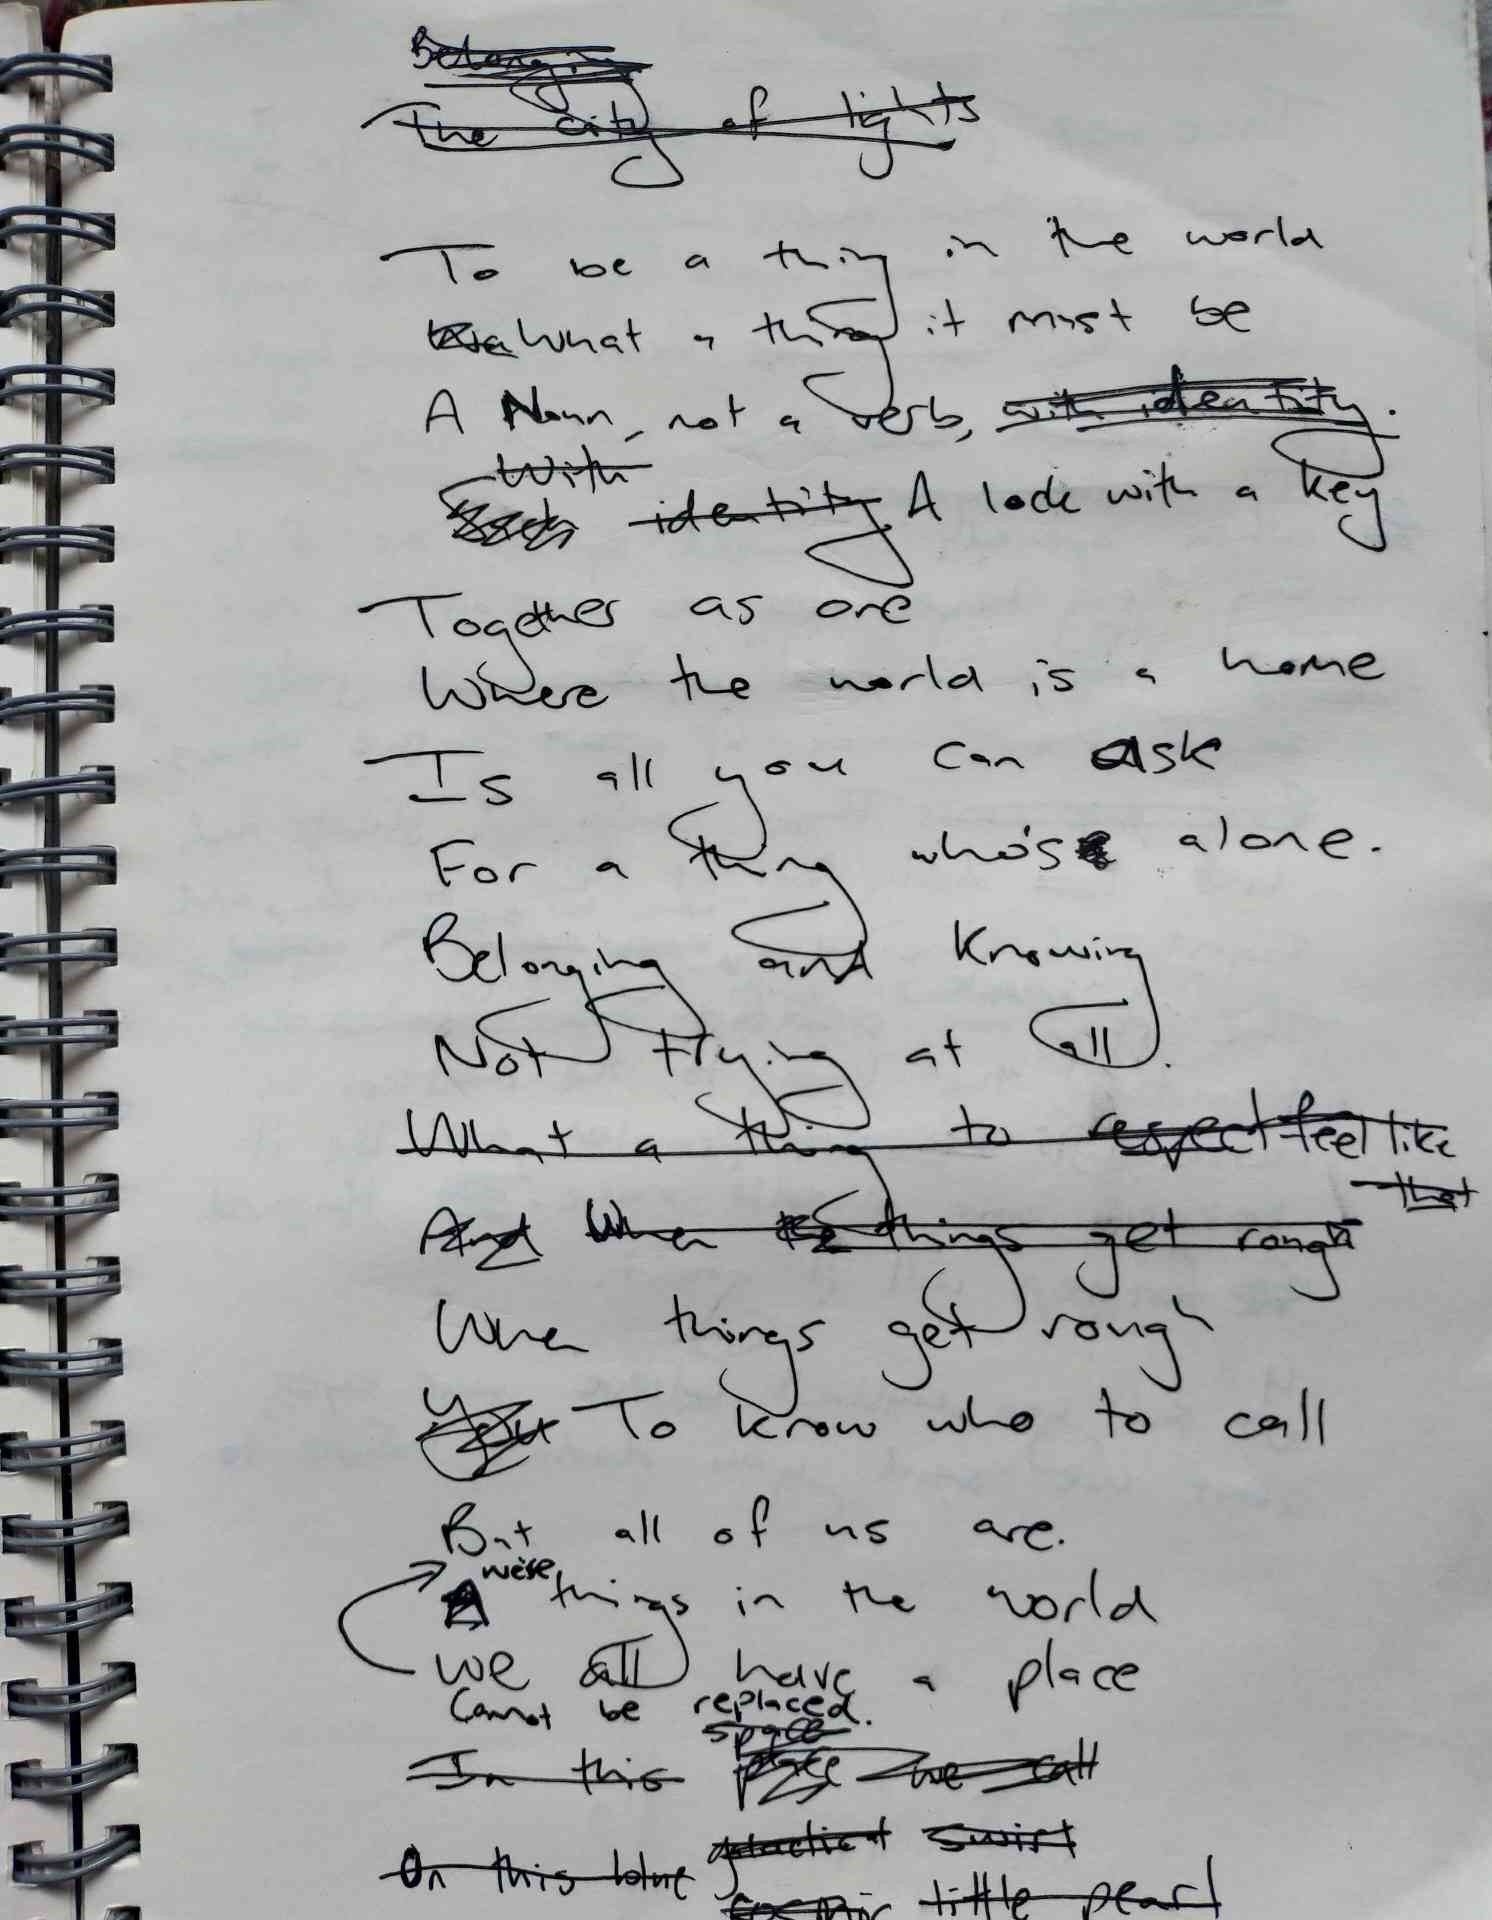 Belonging
The city of lights
To be a thing in the world
What a thing it must be
A Noun, not a verb, with identity.
With
identity A lock with a key
Together as one
Where the world is a home
Is all you can ask
For a thing who's alone.
Belonging and Knowing
Not Trying at all.
What a thing to respect feel like
that
And When things get rough
When things get rough
You To know who to call
But all of us are.
we're
things in the world
we all have a place
Cannot be replaced.
space
In this place we call
galactical swirl
On this blue
cosmic little pearl